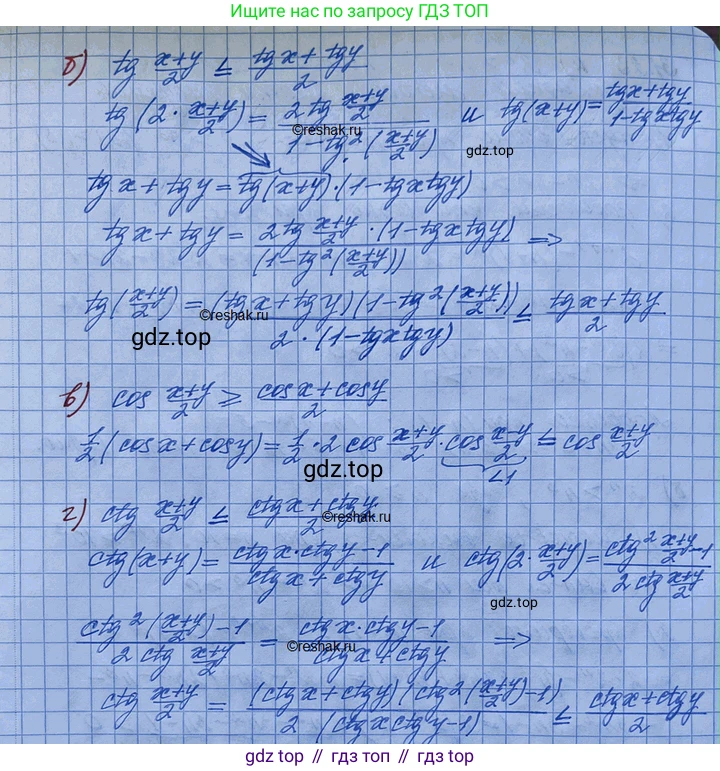 Ищите нас по запросу ГДЗ ТОП
б) tg (x+y)/2 ≤ (tgx + tgy)/2
tg(2·(x+y)/2) = 2tg (x+y)/2 / (1-tg²((x+y)/2)) и tg(x+y) = (tgx+tgy)/(1-tgxtgy)
©reshak.ru
gdz.top
tgx + tgy = tg(x+y)·(1-tgxtgy)
tgx + tgy = 2tg (x+y)/2 ·(1-tgxtgy) / (1-tg²((x+y)/2)) =>
tg((x+y)/2) = (tgx+tgy)(1-tg²((x+y)/2)) / 2·(1-tgxtgy) ≤ (tgx+tgy)/2
©reshak.ru
gdz.top
в) cos (x+y)/2 ≥ (cosx+cosy)/2
1/2(cosx+cosy) = 1/2·2cos (x+y)/2·cos (x-y)/2 ≤ cos (x+y)/2
<1
gdz.top
г) ctg (x+y)/2 ≤ (ctgx+ctgy)/2
©reshak.ru
ctg(x+y) = (ctgx·ctgy-1)/(ctgx+ctgy) и ctg(2·(x+y)/2) = (ctg² (x+y)/2 -1)/(2ctg (x+y)/2)
gdz.top
(ctg²((x+y)/2)-1)/(2ctg (x+y)/2) = (ctgx·ctgy-1)/(ctgx+ctgy) =>
©reshak.ru
ctg (x+y)/2 = (ctgx+ctgy)(ctg²((x+y)/2)-1) / 2(ctgxctgy-1) ≤ (ctgx+ctgy)/2
gdz top // гдз топ // gdz.top